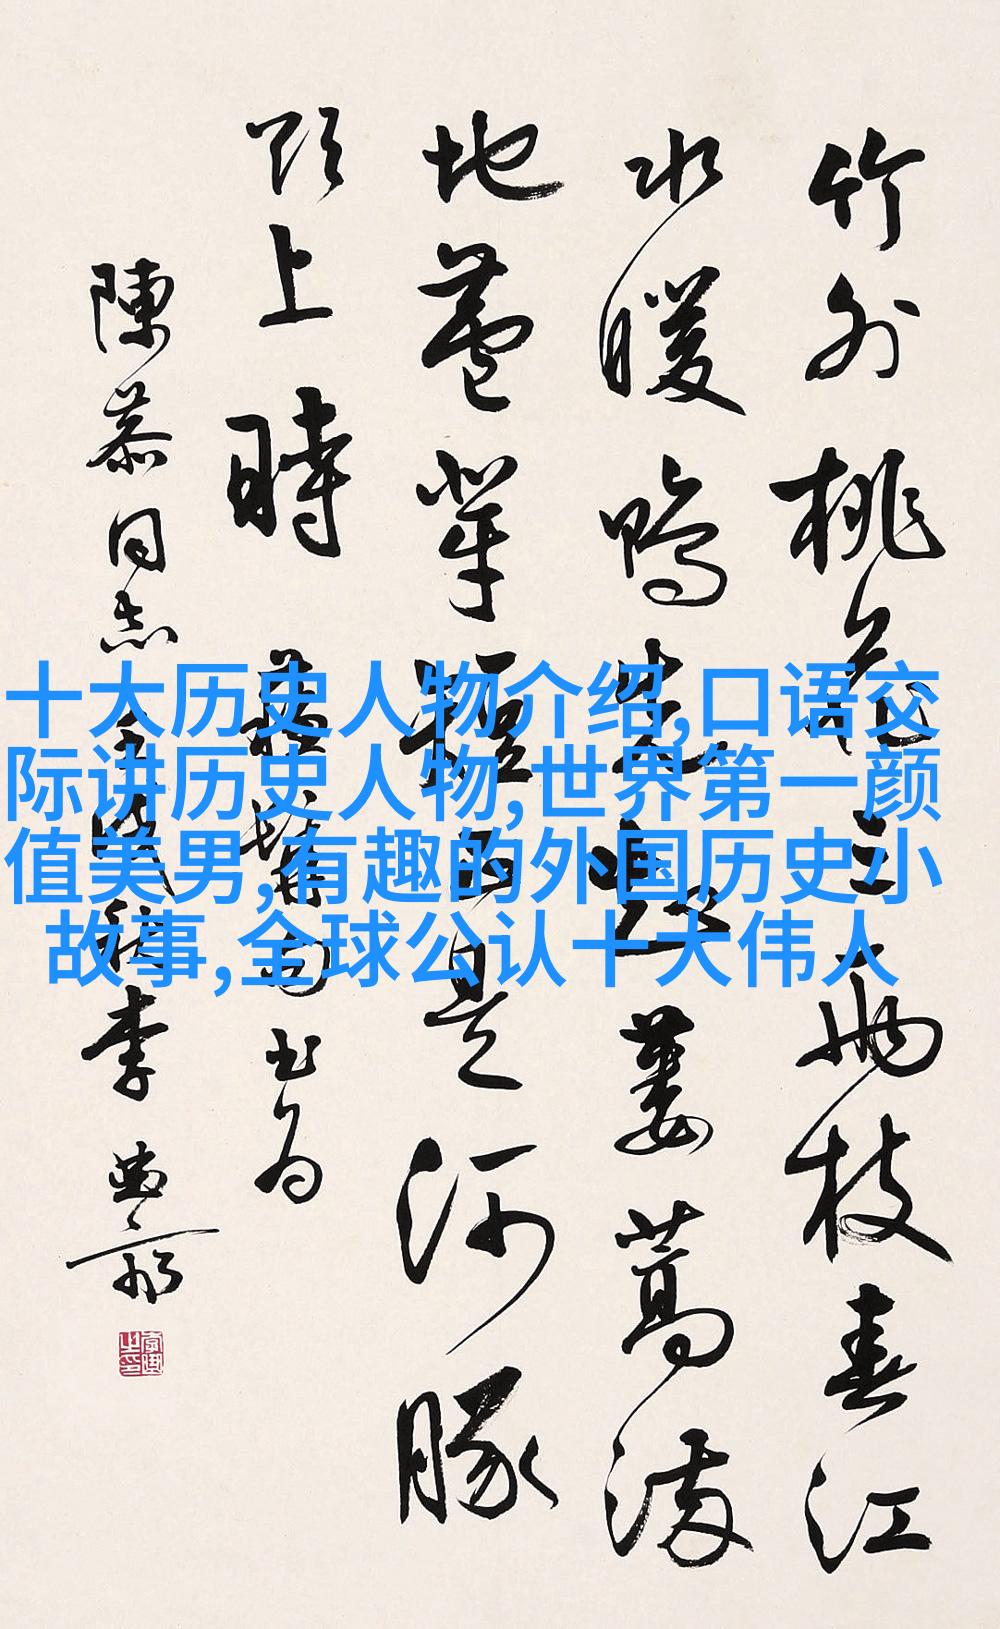 十大历史人物介绍,口语交
际讲历史人物,世界第一颜
值美男,有趣的外国历史小
故事,全球公认十大伟人
竹外桃花三兩枝春江
水暖鴨先知蔞蒿滿
地蘆芽短正是河豚
欲上時 蘇髯句書为
陳恭同志 秋李曲齋